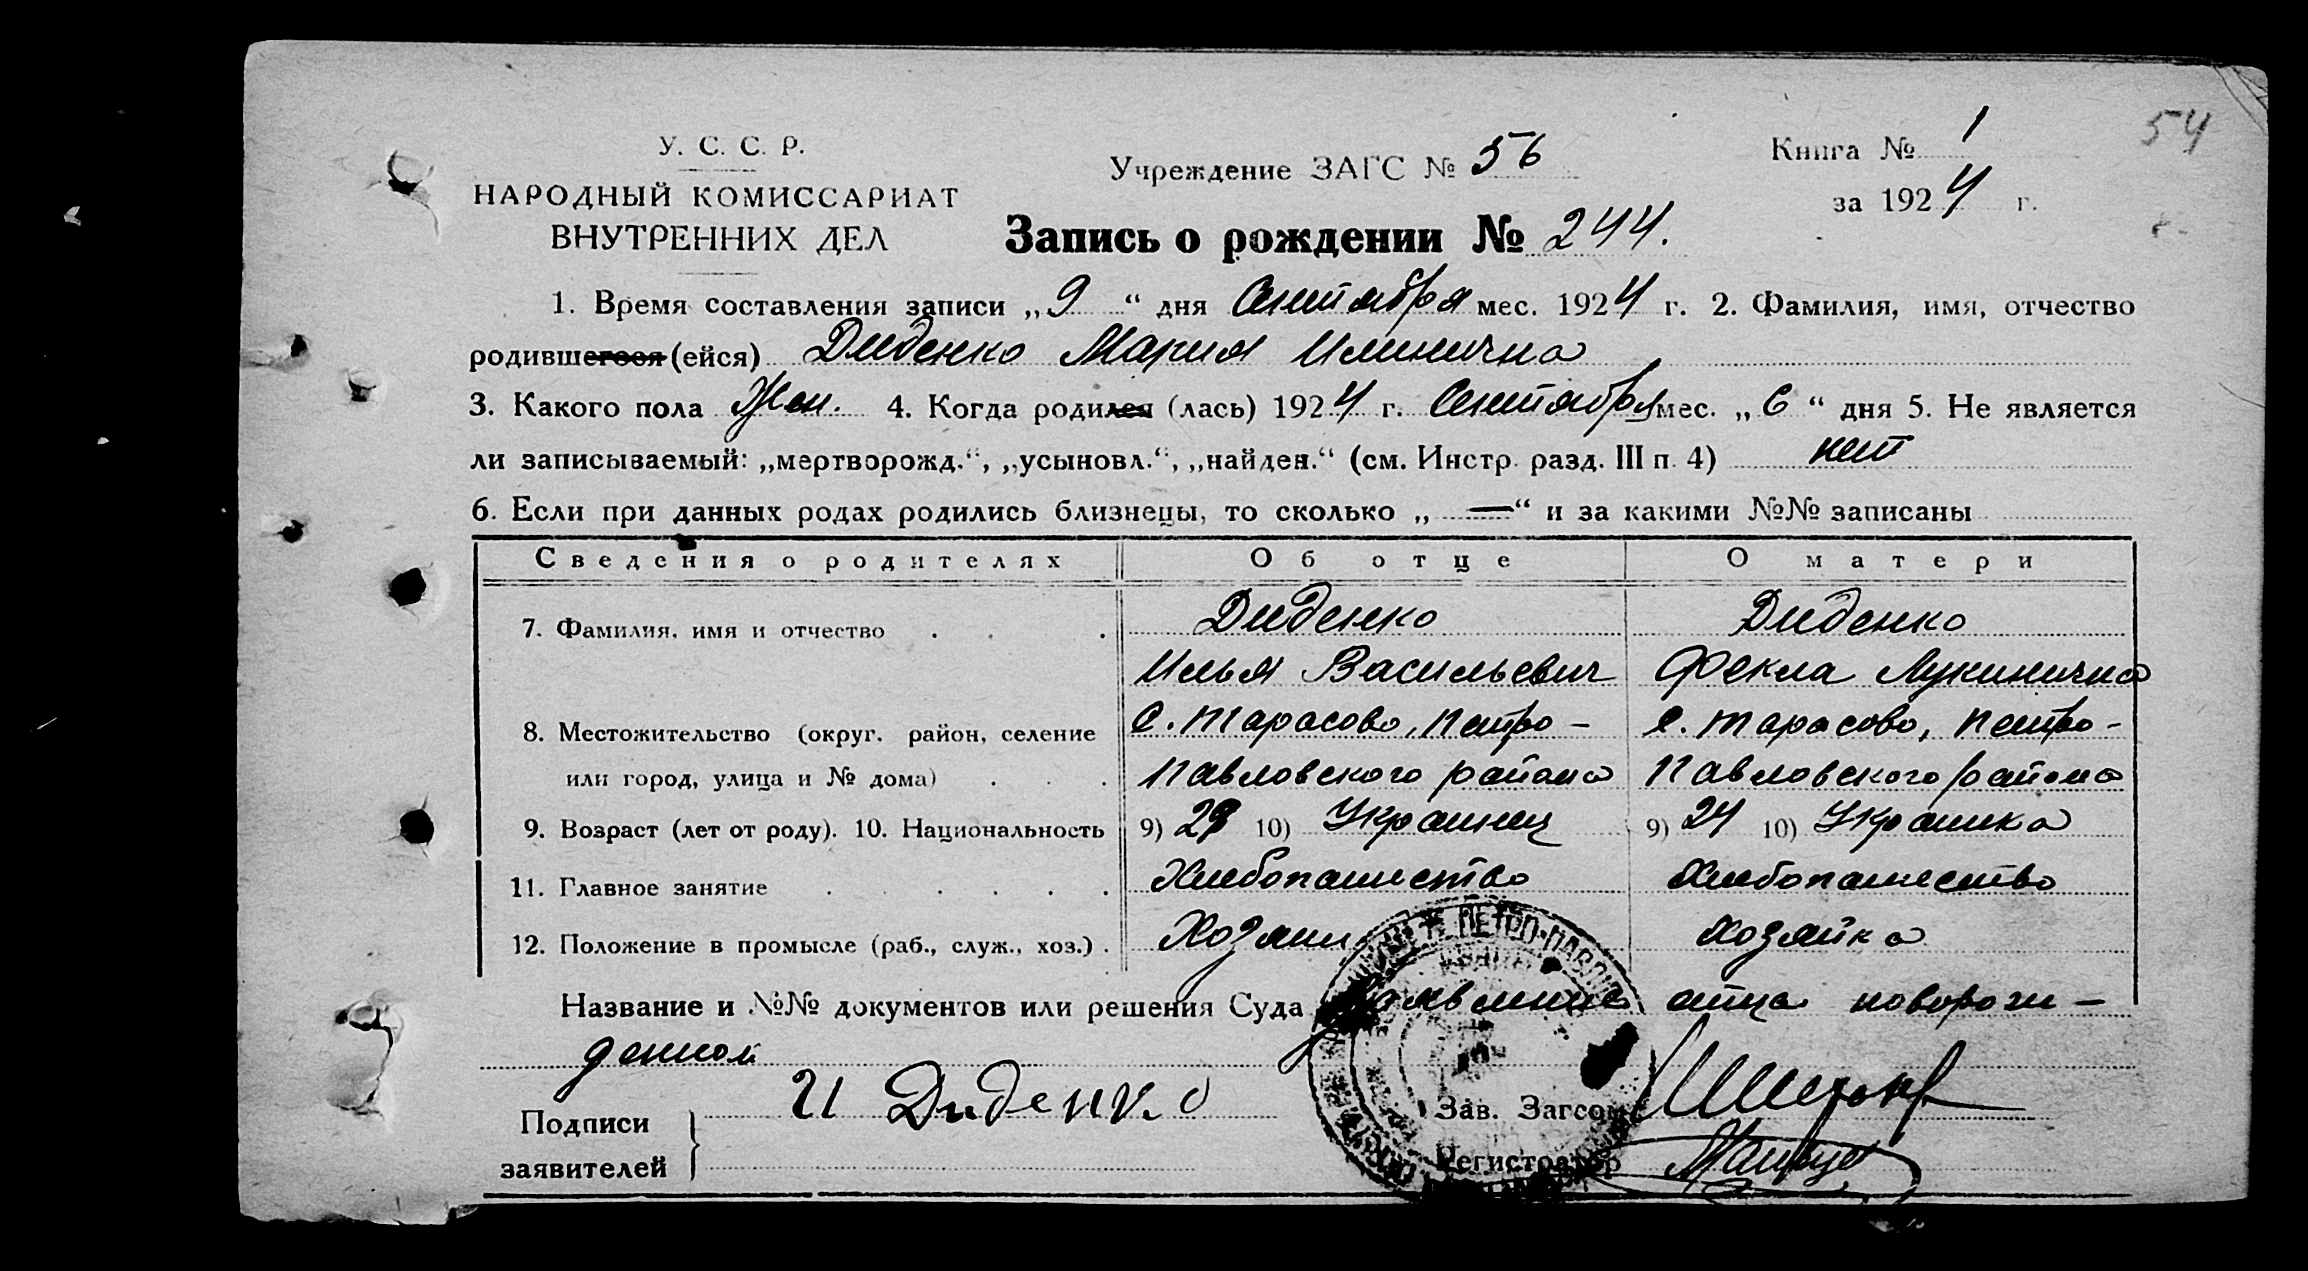 54
У. С. С. Р.
НАРОДНЫЙ КОМИССАРИАТ
ВНУТРЕННИХ ДЕЛ
Учреждение ЗАГС № 56
Книга № 1
за 1924 г.
Запись о рождении № 244.
1. Время составления записи „9“ дня Сентября мес. 1924 г. 2. Фамилия, имя, отчество
родившегося (ейся) Диденко Мария Ильинична
3. Какого пола Жен. 4. Когда родился (лась) 1924 г. Сентября мес. „6“ дня 5. Не является
ли записываемый: „мертворожд.“, „усыновл.“, „найден.“ (см. Инстр. разд. III п. 4) нет
6. Если при данных родах родились близнецы, то сколько „—“ и за какими №№ записаны
Сведения о родителях Об отце О матери
7. Фамилия, имя и отчество Диденко Диденко
Илья Васильевич Фекла Лукинична
8. Местожительство (округ, район, селение с. Тарасово, Петро- с. Тарасово, Петро-
или город, улица и № дома) Павловского района Павловского района
9. Возраст (лет от роду). 10. Национальность 9) 10) Украинец 9) 24 10) Украинка
11. Главное занятие Хлебопашество Хлебопашество
12. Положение в промысле (раб., служ., хоз.) Хозяин хозяйка
Название и №№ документов или решения Суда Заявление отцановорож-
денной
Подписи
заявителей
И Диденко
Зав. Загсом
Регистратор
ПЕТРО-ПАВЛОВ